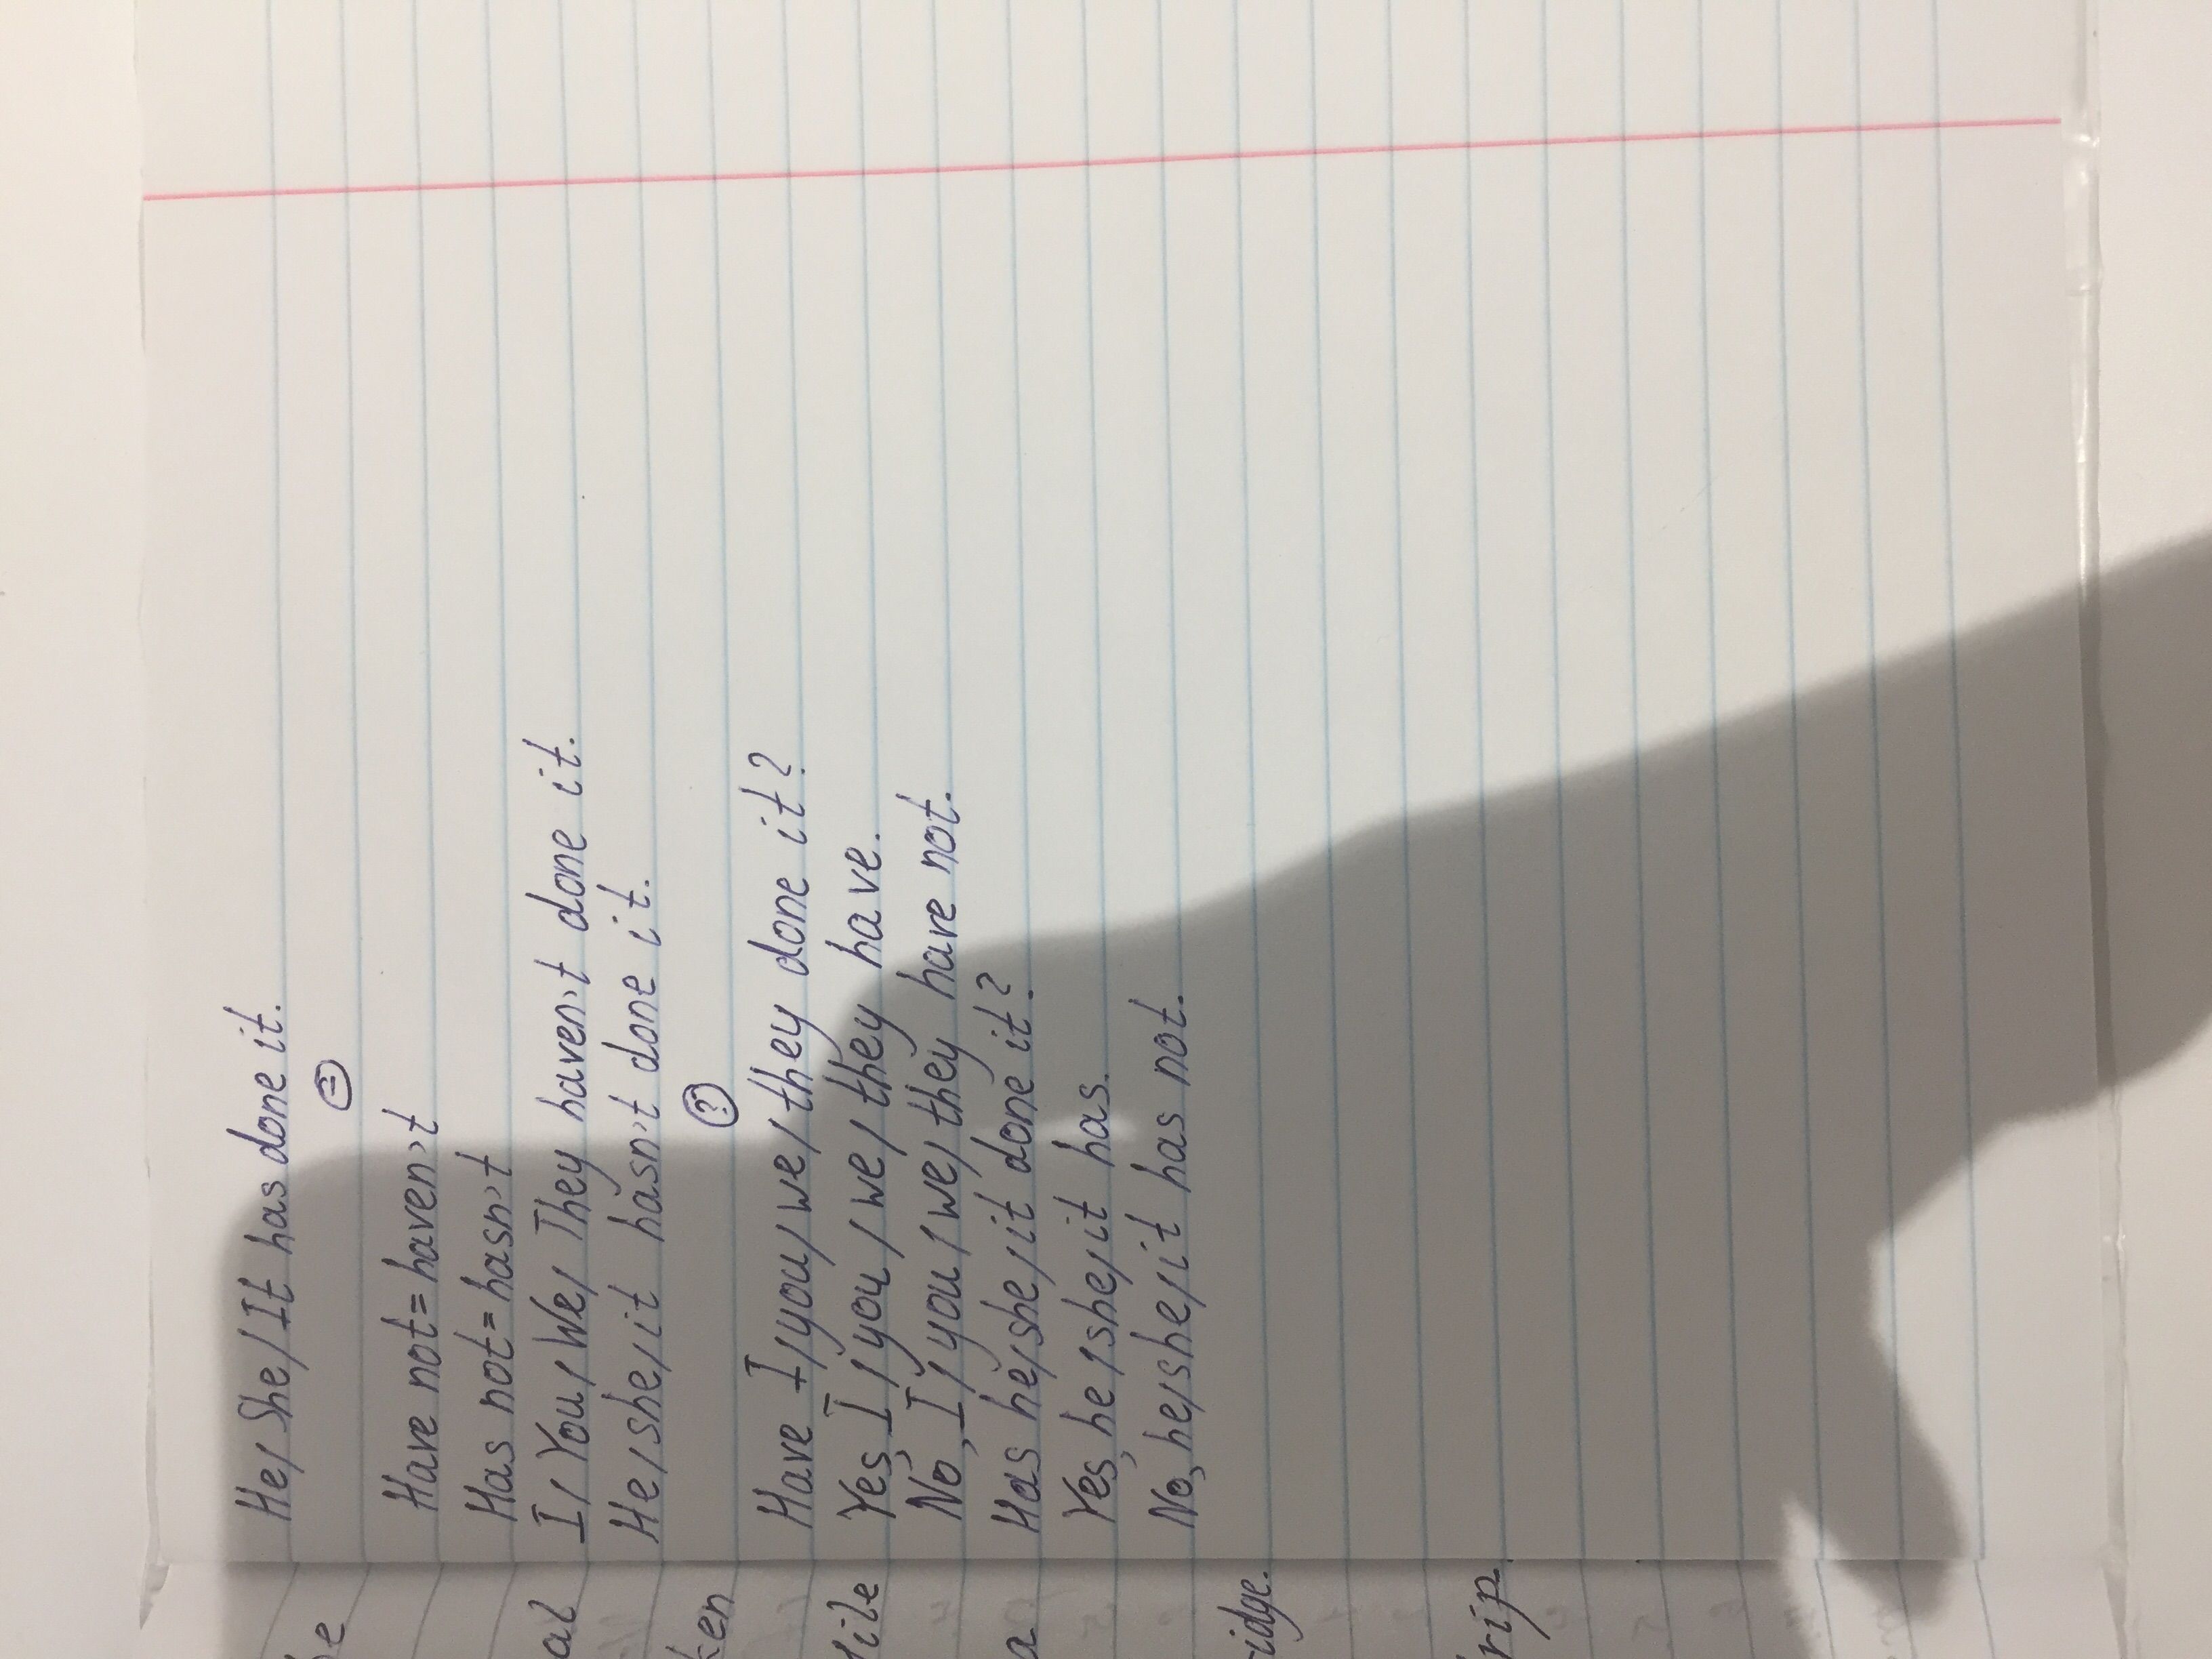 He/She/It has done it.
(−)
Have not = haven't
Has not = hasn't
I/You/We/They haven't done it.
He/she/it hasn't done it.
(?)
Have I/you/we/they done it?
Yes, I/you/we/they have.
No, I/you/we/they have not.
Has he/she/it done it?
Yes, he/she/it has.
No, he/she/it has not.